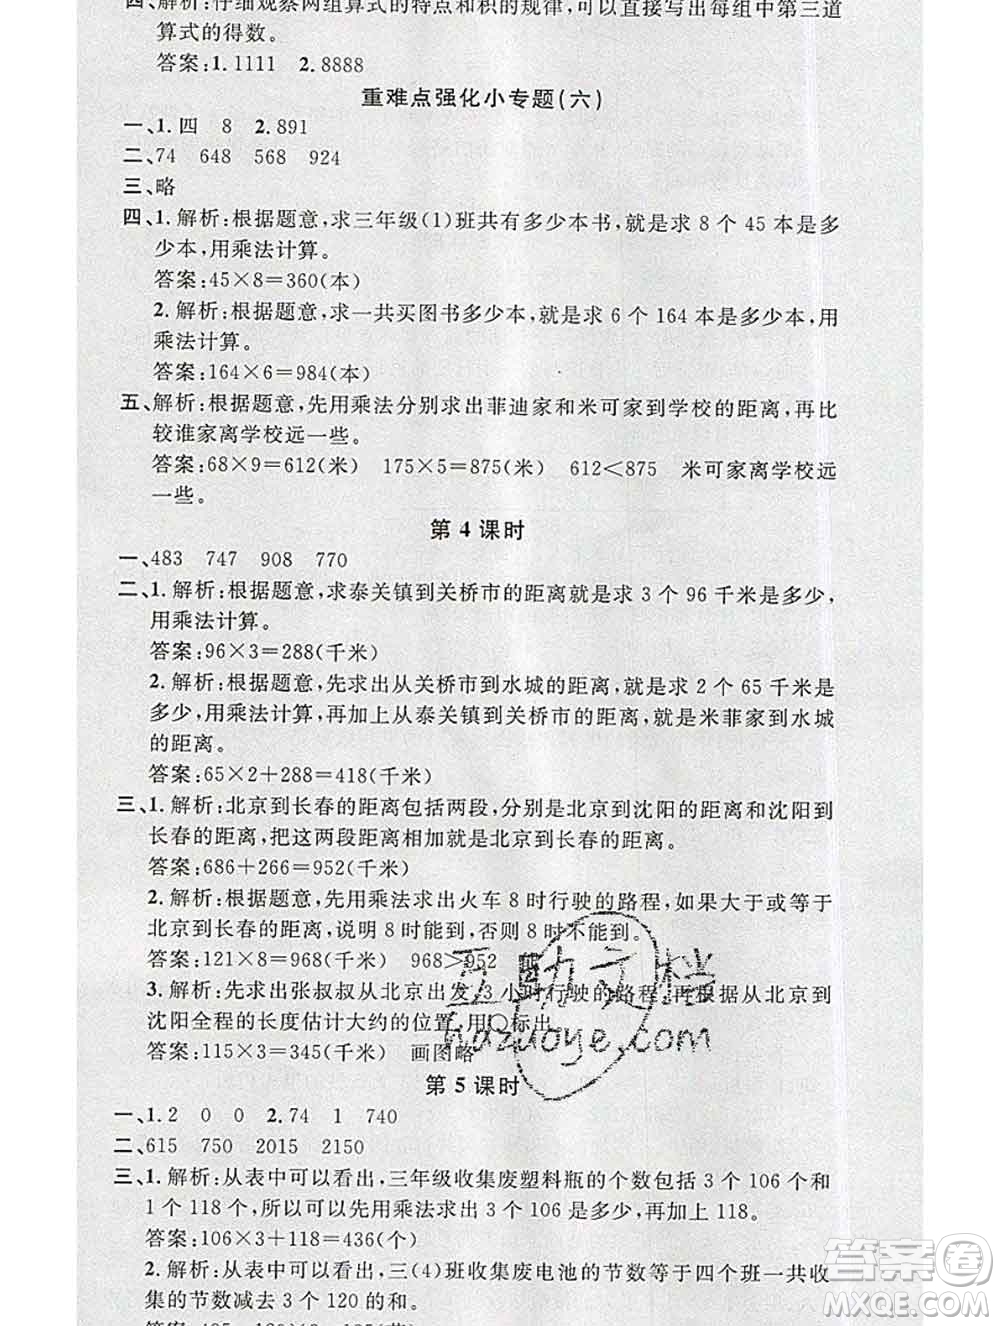 四、解析:仔细观察两组算式的特点和积的规律,可以直接写出每组中第三道
算式的得数。
答案:1.1111 2.8888
重难点强化小专题(六)
一、1.四 8 2.891
二、74 648 568 924
三、略
四、1.解析:根据题意,求三年级(1)班共有多少本书,就是求 8 个 45 本是多
少本,用乘法计算。
答案:45×8=360(本)
2.解析:根据题意,求一共买图书多少本,就是求 6 个 164 本是多少本,用
乘法计算。
答案:164×6=984(本)
五、解析:根据题意,先用乘法分别求出菲迪家和米可家到学校的距离,再比
较谁家离学校远一些。
答案:68×9=612(米) 175×5=875(米) 612<875 米可家离学校远
一些。
第 4 课时
一、483 747 908 770
二、1.解析:根据题意,求泰关镇到关桥市的距离就是求 3 个 96 千米是多少,
用乘法计算。
答案:96×3=288(千米)
2.解析:根据题意,先求出从关桥市到水城的距离,就是求 2 个 65 千米是
多少,用乘法计算,再加上从泰关镇到关桥市的距离,就是米菲家到水城
的距离。
答案:65×2+288=418(千米)
三、1.解析:北京到长春的距离包括两段,分别是北京到沈阳的距离和沈阳到
长春的距离,把这两段距离相加就是北京到长春的距离。
答案:686+266=952(千米)
2.解析:根据题意,先用乘法求出火车 8 时行驶的路程,如果大于或等于
北京到长春的距离,说明 8 时能到,否则 8 时不能到。
答案:121×8=968(千米) 968>952 能
3.解析:先求出张叔叔从北京出发 3 小时行驶的路程,再根据从北京到
沈阳全程的长度估计大约的位置,用○标出。
答案:115×3=345(千米) 画图略
互助文档
hazuoye.com
第 5 课时
一、1.2 0 0 2.74 1 740
二、615 750 2015 2150
三、1.解析:从表中可以看出,三年级收集废塑料瓶的个数包括 3 个 106 个和
1 个 118 个,所以可以先用乘法求出 3 个 106 是多少,再加上 118。
答案:106×3+118=436(个)
2.解析:从表中可以看出,三(4)班收集废电池的节数等于四个班一共收
集的节数减去 3 个 120 的和。
答案圈
MXQE.COM